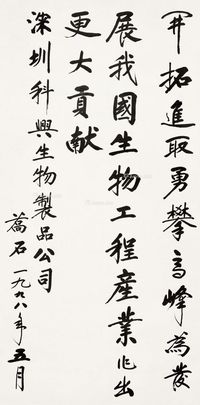 开拓進取勇攀高峰為發
展我國生物工程産業作出
更大貢献
深圳科興生物製品公司
蒿石一九九八年五月